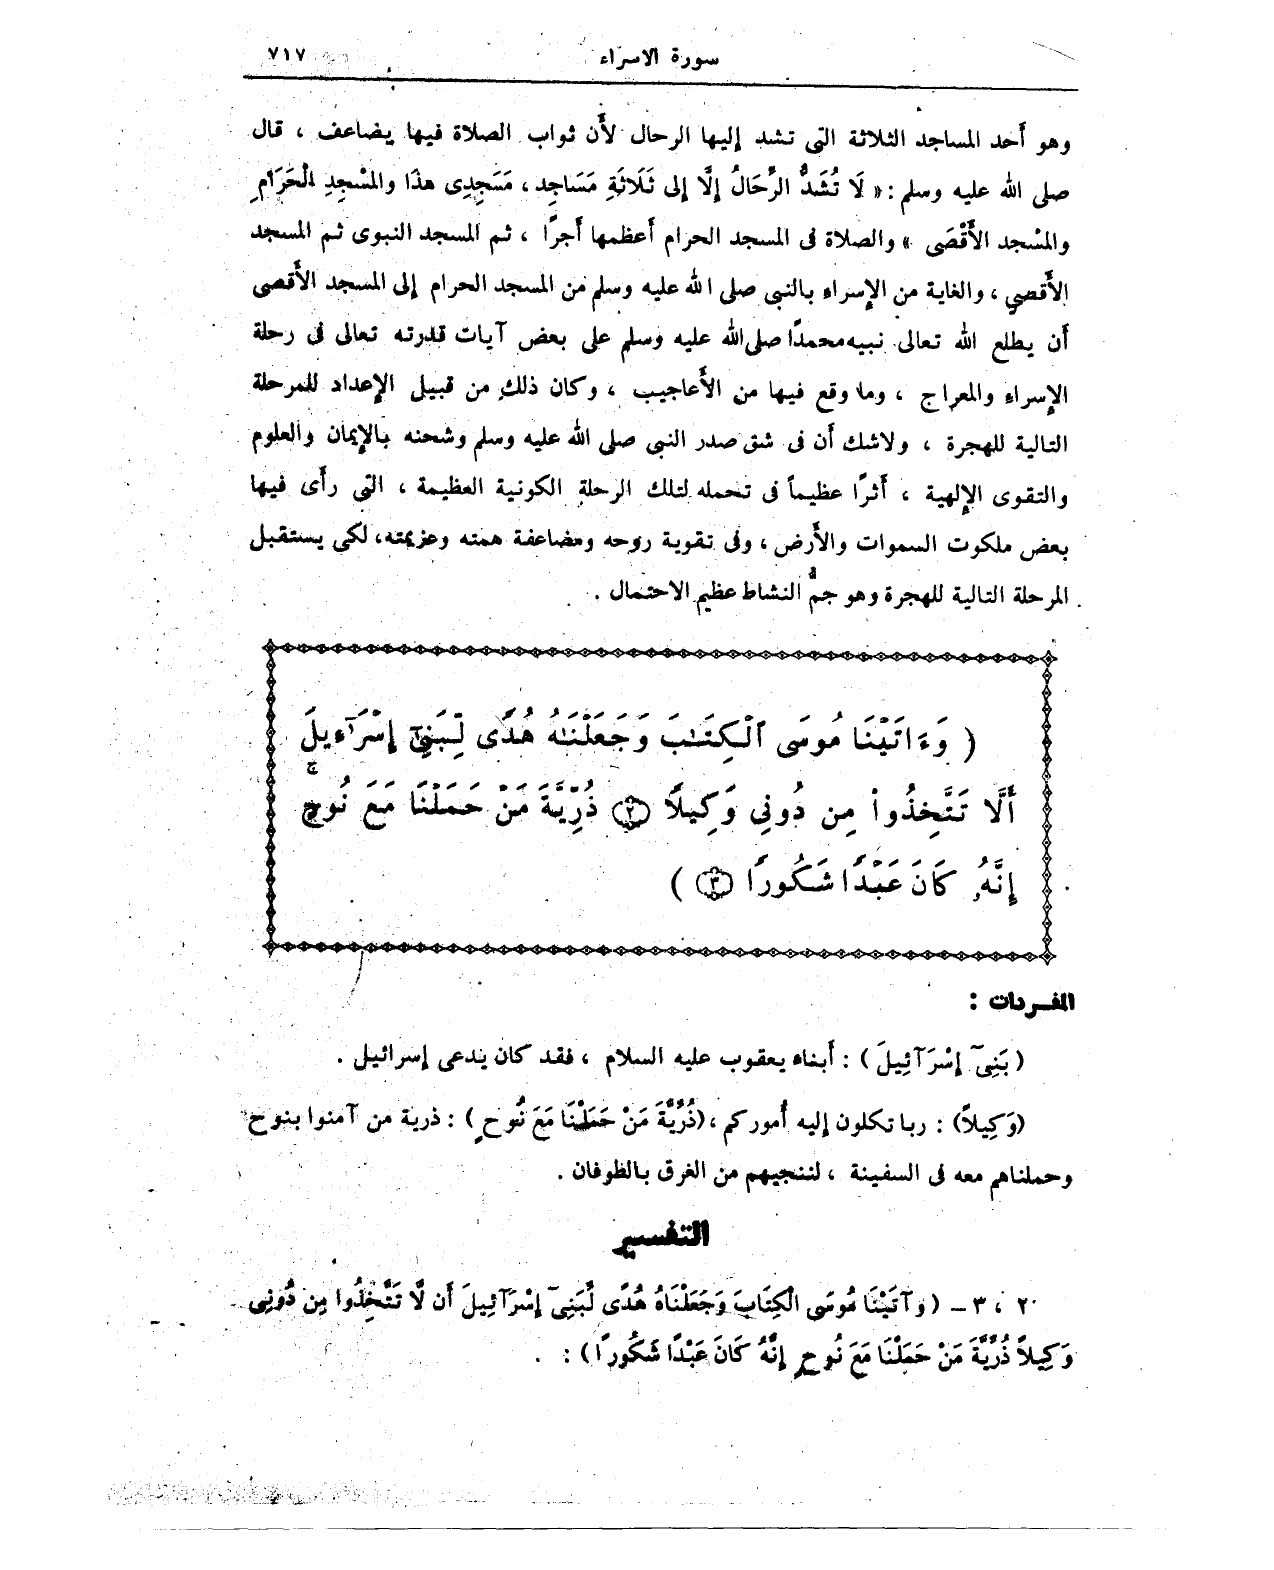 سورة الاسراء ٧١٧
وهو أحد المساجد الثلاثة التى تشد إليها الرحال لأن ثواب الصلاة فيها يضاعف ، قال
صلى الله عليه وسلم : « لَا تُشَدُّ الرِّحَالُ إِلَّا إِلى ثَلَاثَةِ مَسَاجِد ، مَسْجِدِى هذَا والمَسْجِدِ الْحَرَامِ
والمَسْجد الأَقْصَى » والصلاة فى المسجد الحرام أعظمها أجرًا ، ثم المسجد النبوى ثم المسجد
الأقصى ، والغاية من الإسراء بالنبى صلى الله عليه وسلم من المسجد الحرام إلى المسجد الأقصى
أن يطلع الله تعالى نبيه محمدًا صلى الله عليه وسلم على بعض آيات قدرته تعالى فى رحلة
الإسراء والمعراج ، وما وقع فيها من الأعاجيب ، وكان ذلك من قبيل الإعداد للمرحلة
التالية للهجرة ، ولاشك أن فى شق صدر النبى صلى الله عليه وسلم وشحنه بالإيمان والعلوم
والتقوى الإلهية ، أثرًا عظيماً فى تحمله لتلك الرحلة الكونية العظيمة ، التى رأى فيها
بعض ملكوت السموات والأرض ، وفى تقوية روحه ومضاعفة همته وعزيمته، لكى يستقبل
المرحلة التالية للهجرة وهو جمُّ النشاط عظيم الاحتمال .
( وَءَاتَيْنَا مُوسَى ٱلْكِتَـٰبَ وَجَعَلْنَـٰهُ هُدًى لِّبَنِىٓ إِسْرَٰٓءِيلَ
أَلَّا تَتَّخِذُوا۟ مِن دُونِى وَكِيلًا ﴿٢﴾ ذُرِّيَّةَ مَنْ حَمَلْنَا مَعَ نُوحٍ ۚ
إِنَّهُۥ كَانَ عَبْدًا شَكُورًا ﴿٣﴾ )
المفـردات :
( بَنِىٓ إِسْرَآئِيلَ ) : أبناء يعقوب عليه السلام ، فقد كان يدعى إسرائيل .
(وَكِيلاً) : ربا تكلون إليه أموركم ، (ذُرِّيَّةَ مَنْ حَمَلْنَا مَعَ نُوحٍ ) : ذرية من آمنوا بنوح
وحملناهم معه فى السفينة ، لننجيهم من الغرق بالطوفان .
التفسير
٢ ، ٣ – ( وَآتَيْنَا مُوسَى الْكِتَابَ وَجَعَلْنَاهُ هُدًى لِّبَنِىٓ إِسْرَآئِيلَ أَن لَّا تَتَّخِذُوا مِن دُونِى
وَكِيلاً ذُرِّيَّةَ مَنْ حَمَلْنَا مَعَ نُوحٍ إِنَّهُ كَانَ عَبْدًا شَكُورًا ) :